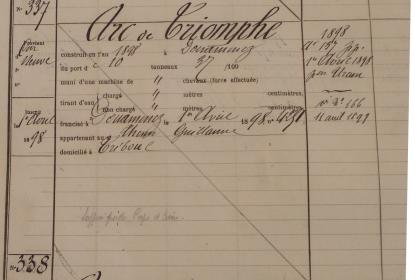 N° 337
Arc de Triomphe
construit en l'an 1898 à Douarnenez
du port de 10 tonneaux 37 /100
muni d'une machine de " chevaux (force effectuée)
tirant d'eau chargé " mètres " centimètres.
non chargé " mètres " centimètres
francisé à Douarnenez le 1er Avril 1898 n° 491
appartenant au Guillaume
domicilié à Tréboul
Provient
neuve
Inscrit
1er Avril
1898
1898
1er Avril 1898
n° 166
11 avril 1899
N° 338